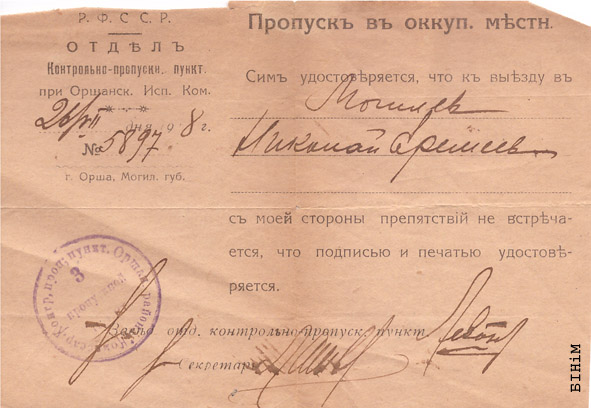 Р. Ф. С. С. Р.
ОТДѢЛЪ
Контрольно-пропускн. пункт.
при Оршанск. Исп. Ком.
26/VII дня 1918 г.
№ 5897
г. Орша, Могил. губ.
Пропускъ въ оккуп. мѣстн.
Симъ удостовѣряется, что къ выѣзду въ
Могилев
Николай Еремеев
съ моей стороны препятствій не встрѣча-
ется, что подписью и печатью удостовѣ-
ряется.
Завѣд. отд. контрольно-пропуск. пункт.
Секретарь
Комиссар. Контр. проп. пункт. Оршан. района
3
БІНіМ